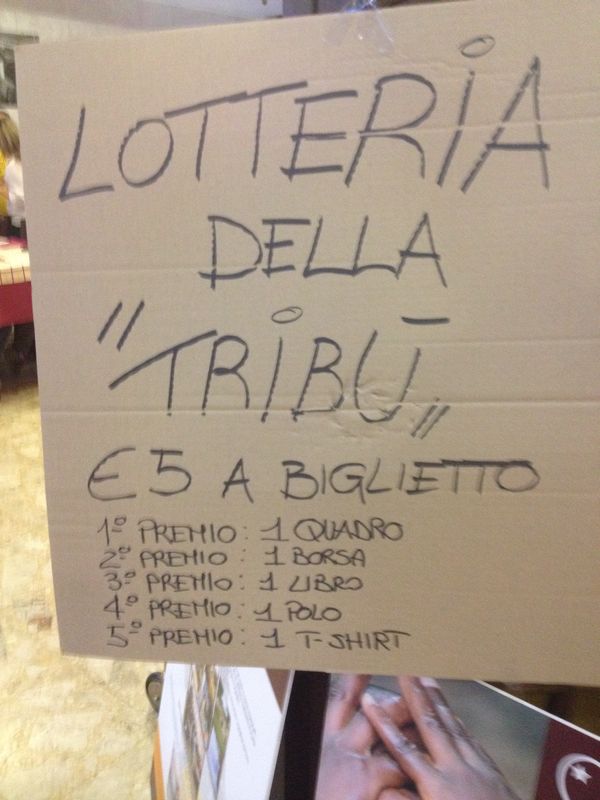 LOTTERIA
DELLA
"TRIBŪ„
€5 A BIGLIETTO
1º PREMIO: 1 QUADRO
2º PREMIO: 1 BORSA
3º PREMIO: 1 LIBRO
4º PREMIO: 1 POLO
5º PREMIO: 1 T-SHIRT